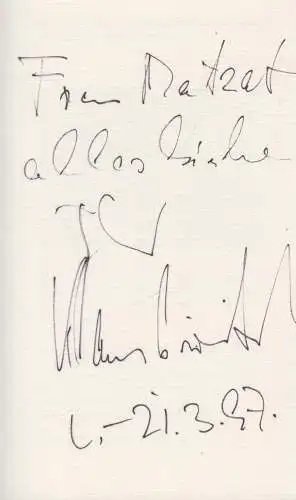 Frau Matzat
alles Liebe
Ihr
L.-21.3.97.